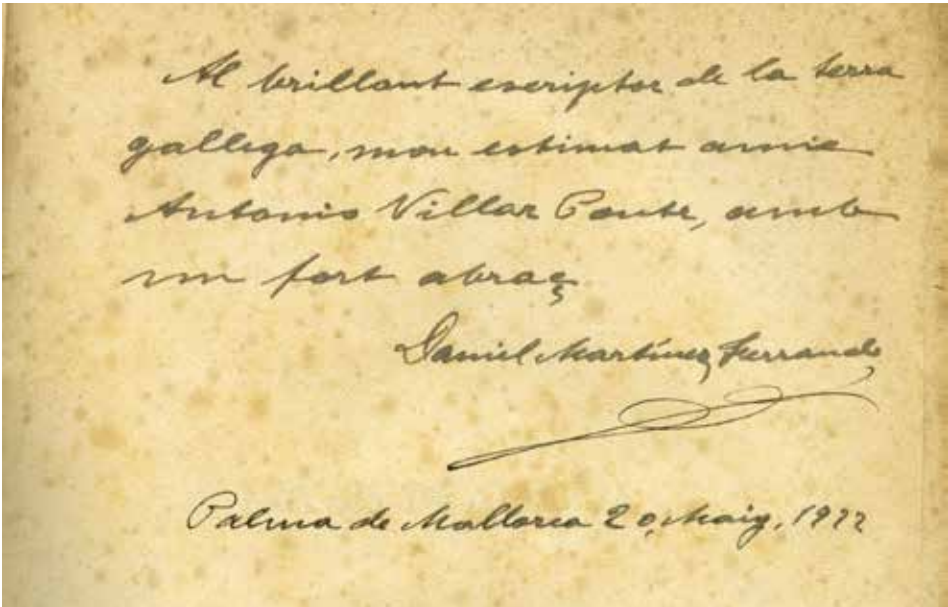 Al brillant escriptor de la terra
gallega, mon estimat amic
Antonio Villar Ponte, amb
un fort abraç
Daniel Martínez Ferrando
Palma de Mallorca 20, Maig, 1922